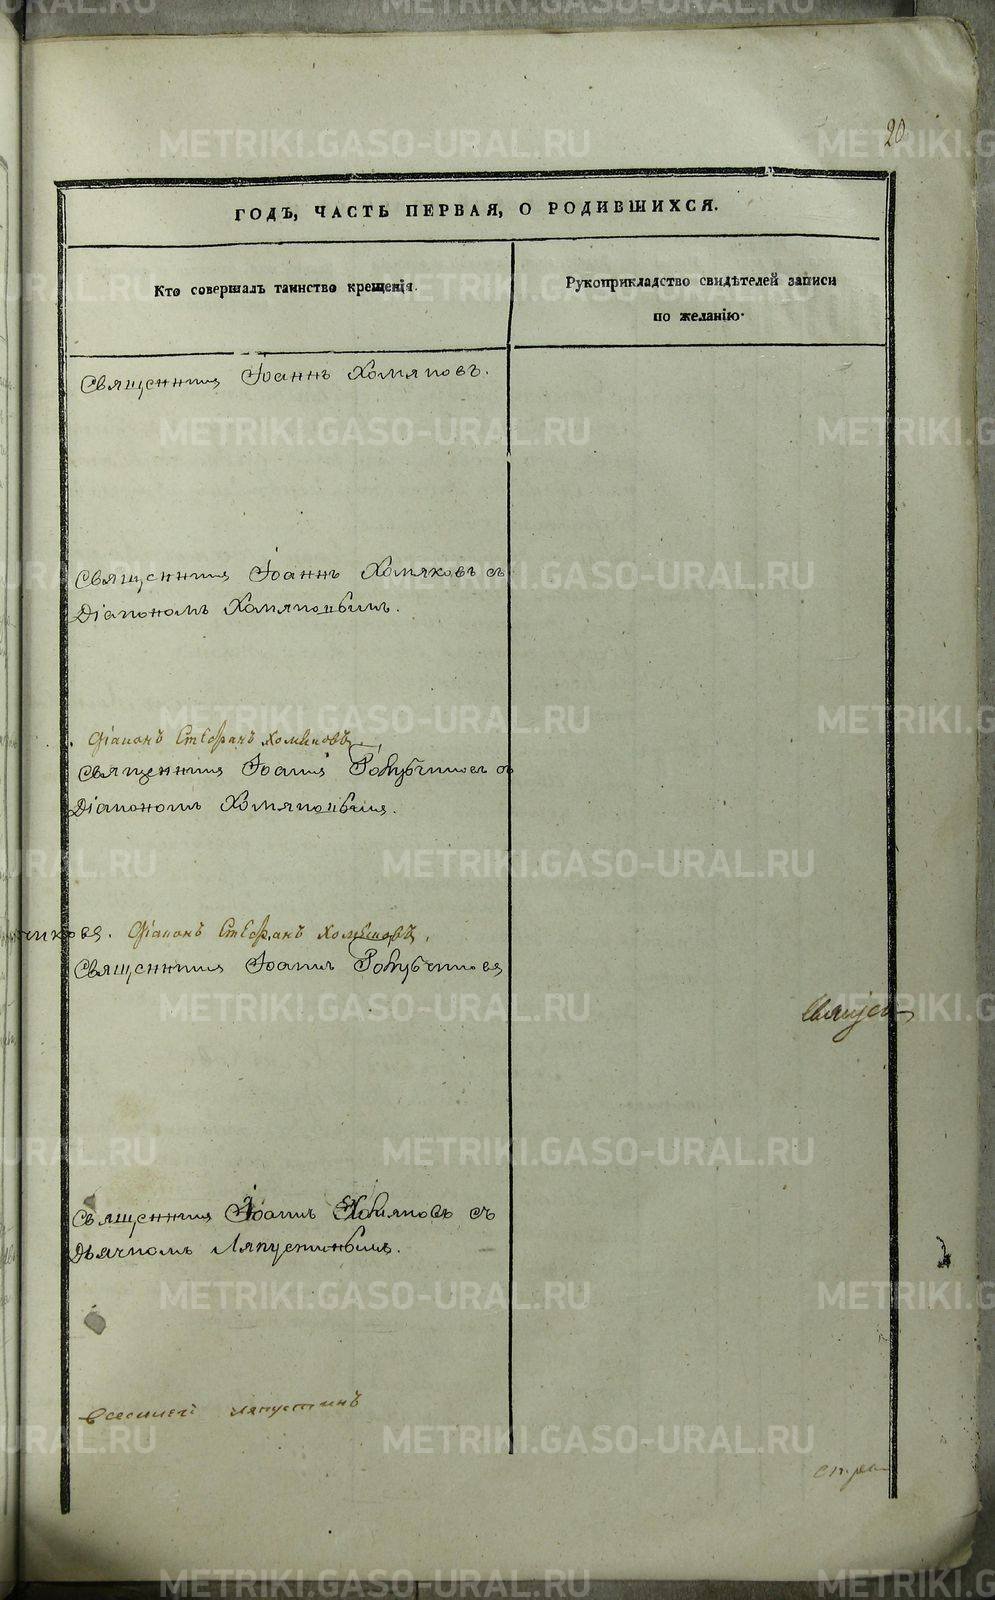 20
ГОДЪ, ЧАСТЬ ПЕРВАЯ, О РОДИВШИХСЯ.
Кто совершалъ таинство крещенія.
Рукоприкладство свидѣтелей записи
по желанію.
Священникъ Іоаннъ Хомяковъ.
Священникъ Іоаннъ Хомяковъ съ
Діакономъ Хомяковымъ.
Діаконъ Стефанъ Хомяковъ
Священникъ Іоаннъ съ
Діакономъ Хомяковымъ.
Діаконъ Стефанъ Хомяковъ.
Священникъ Іоаннъ
Священ
Священникъ Іоаннъ Хомяковъ съ
Дьячкомъ Ляпустинымъ.
Ляпустинъ
METRIKI.GASO-URAL.RU